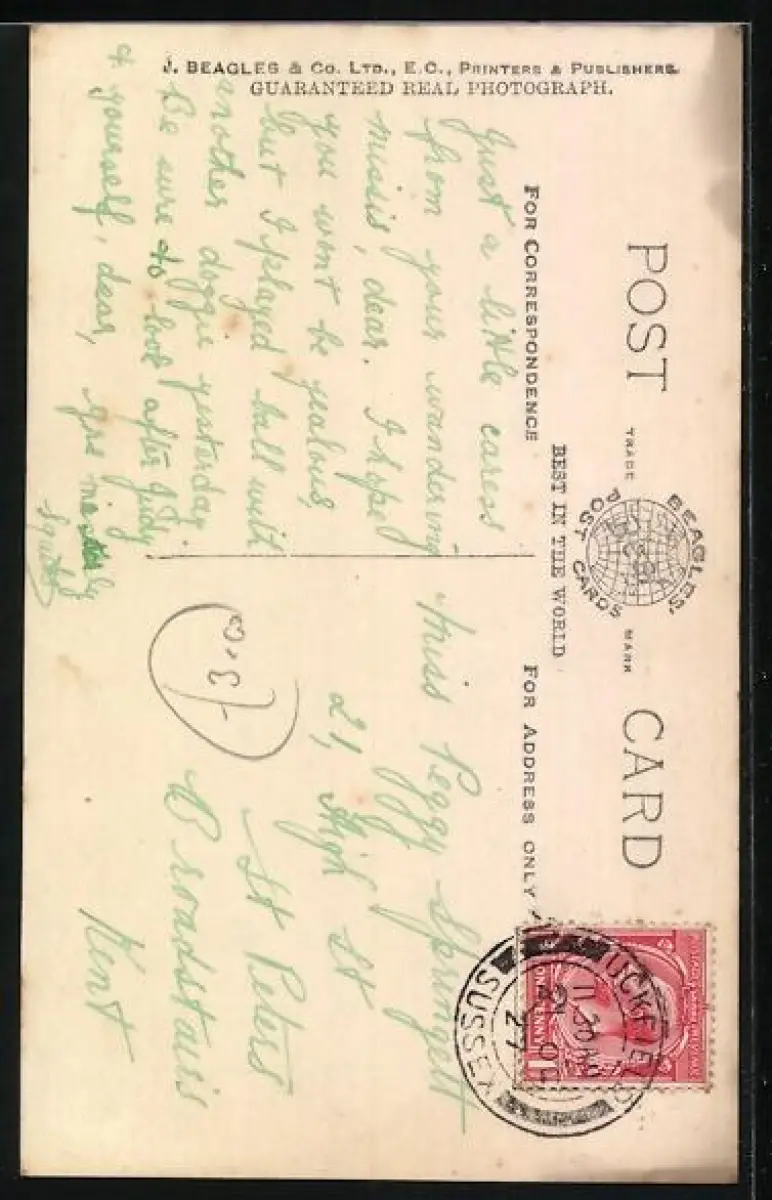 J. BEAGLES & CO. LTD., E.C., PRINTERS & PUBLISHERS.
GUARANTEED REAL PHOTOGRAPH.
POST CARD
TRADE MARK
BEAGLES' POST CARDS
BEST IN THE WORLD
FOR CORRESPONDENCE
FOR ADDRESS ONLY
Just a little caress
from your wandering
missis, dear. I hope
you won't be jealous,
but I played ball with
another doggie yesterday
Be sure to look after Judy
& yourself, dear,
Miss Peggy Springett
21, High St
St Peters
Broadstairs
Kent
UCKFIELD
SUSSEX
11 30 AM
27